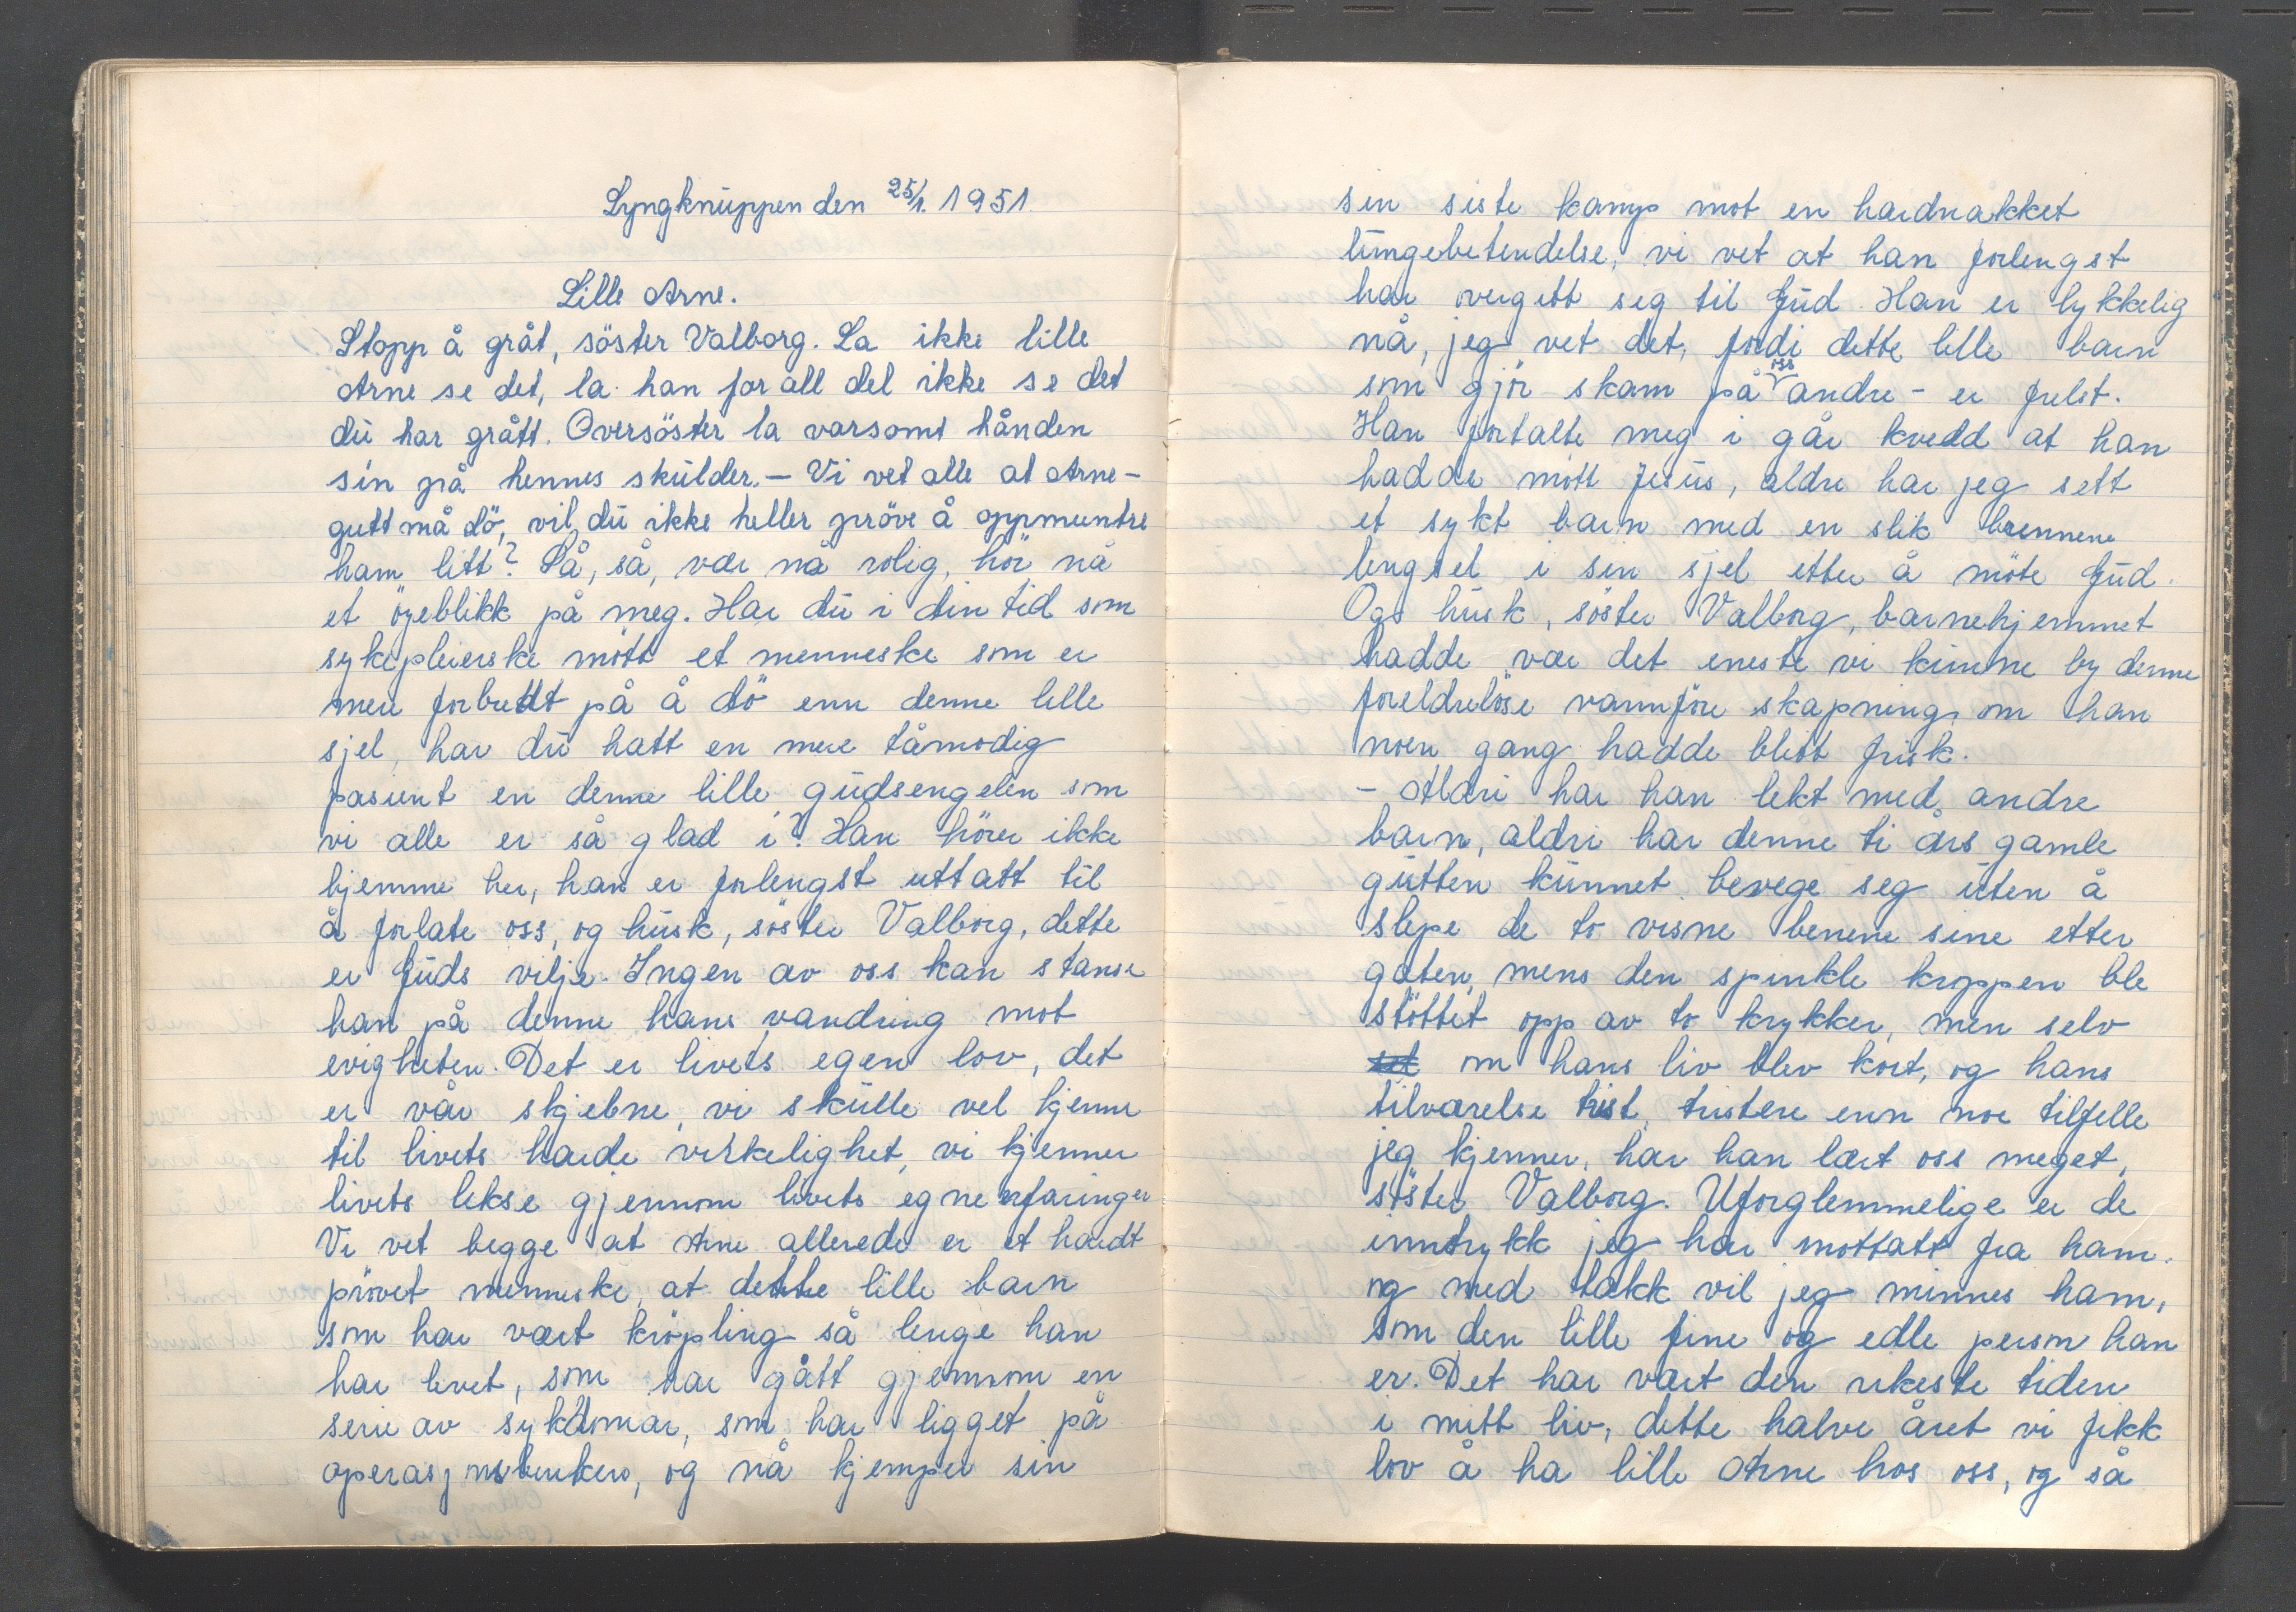 Lyngknuppen den 25/1. 1951.
Lille Arne.
Stopp å gråt, söster Valborg. La ikke lille
Arne se det, la han for all del ikke se det
du har grått. Oversöster la varsomt hånden
sin på hennes skulder. – Vi vet alle at Arne-
gutt må dö, vil du ikke heller pröve å oppmuntre
ham litt? Så, så, vær nå rolig, hör nå
et öyeblikk på meg. Har du i din tid som
sykepleierske mött et menneske som er
mer forbredt på å dö enn denne lille
sjel, har du hatt en mere tåmodig
pasient en denne lille gudsengelen som
vi alle er så glad i? Han hörer ikke
hjemme her, han er forlengst uttatt til
å forlate oss, og husk, söster Valborg, dette
er Guds vilje. Ingen av oss kan stanse
han på denne hans vandring mot
evigheten. Det er livets egen lov, det
er vår skjebne, vi skulle vel kjenne
til livets harde virkelighet, vi kjenner
livets lekse gjennom livets egne erfaringer
Vi vet begge at Arne allerede er et hardt
prövet menneske, at dette lille barn
som har vært kröpling så lenge han
har levet, som har gått gjennom en
serie av sykdomar, som har ligget på
operasjonsbenken, og nå kjemper sin
sin siste kamp mot en hardnakket
lungebetendelse, vi vet at han forlengst
har overgitt seg til Gud. Han er lykkelig
nå, jeg vet det, fordi dette lille barn
som gjör skam på oss andre - er frelst.
Han fortalte meg i går kvedd at han
hadde mött Jesus, aldre har jeg sett
et sykt barn med en slik brennene
lengsel i sin sjel etter å möte Gud.
Ogs husk, söster Valborg, barnehjemmet
hadde vær det eneste vi kunne by denne
foreldrelöse vannföre skapning om han
noen gang hadde blitt frisk.
- Aldri har han lekt med andre
barn, aldri har denne ti års gamle
gutten kunnet bevege seg uten å
slepe de to visne benene sine etter
gaten, mens den spinkle kroppen ble
stöttet opp av to krykker, men selv
om hans liv blev kort, og hans
tilværelse trist, tristere enn noe tilfelle
jeg kjenner, har han lært oss meget,
söster Valborg. Uforglemmelige er de
inntrykk jeg har mottatt fra ham.
og med takk vil jeg minnes ham,
som den lille fine og edle person han
er. Det har vært den rikeste tiden
i mitt liv, dette halve året vi fikk
lov å ha lille Arne hos oss, og så